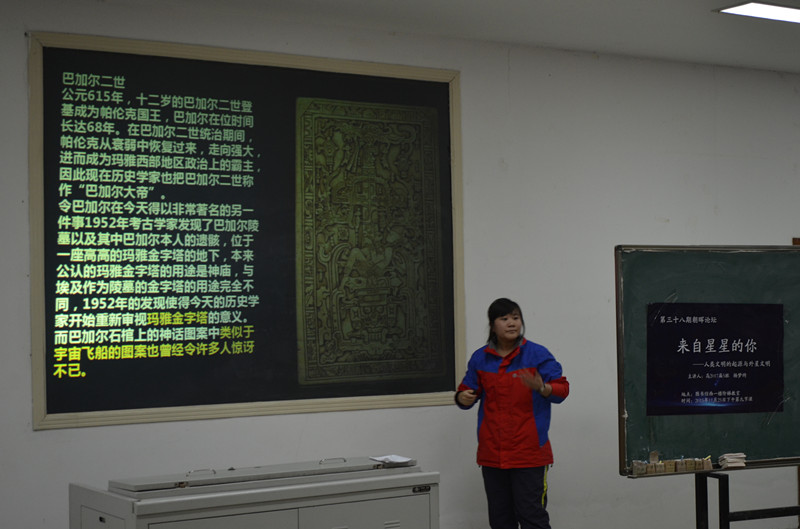 巴加尔二世
公元615年，十二岁的巴加尔二世登
基成为帕伦克国王，巴加尔在位时间
长达68年。在巴加尔二世统治期间，
帕伦克从衰弱中恢复过来，走向强大，
进而成为玛雅西部地区政治上的霸主，
因此现在历史学家也把巴加尔二世称
作“巴加尔大帝”。
令巴加尔在今天得以非常著名的另一
件事1952年考古学家发现了巴加尔陵
墓以及其中巴加尔本人的遗骸，位于
一座高高的玛雅金字塔的地下，本来
公认的玛雅金字塔的用途是神庙，与
埃及作为陵墓的金字塔的用途完全不
同，1952年的发现使得今天的历史学
家开始重新审视玛雅金字塔的意义。
而巴加尔石棺上的神话图案中类似于
宇宙飞船的图案也曾经令许多人惊讶
不已。
第三十八期朝晖论坛
来自星星的你
——人类文明的起源与外星文明